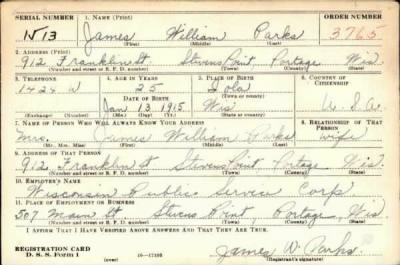 SERIAL NUMBER 1. NAME (Print) ORDER NUMBER
N13 James William Parks 3765
(First) (Middle) (Last)
2. ADDRESS (Print)
912 Franklin St. Stevens Point, Portage Wis.
(Number and street or R. F. D. number) (Town) (County) (State)
3. TELEPHONE 4. AGE IN YEARS 5. PLACE OF BIRTH 6. COUNTRY OF CITIZENSHIP
1424 W 25 Iola
DATE OF BIRTH (Town or county)
Jan 13 1915 Wis U. S. A.
(Exchange) (Number) (Mo.) (Day) (Yr.) (State or country)
7. NAME OF PERSON WHO WILL ALWAYS KNOW YOUR ADDRESS 8. RELATIONSHIP OF THAT PERSON
Mrs. James William Parks wife
(Mr., Mrs., Miss) (First) (Middle) (Last)
9. ADDRESS OF THAT PERSON
912 Franklin St Stevens Point, Portage Wis.
(Number and street or R. F. D. number) (Town) (County) (State)
10. EMPLOYER'S NAME
Wisconsin Public Service Corp
11. PLACE OF EMPLOYMENT OR BUSINESS
507 Main St Stevens Point, Portage, Wis.
(Number and street or R. F. D. number) (Town) (County) (State)
I AFFIRM THAT I HAVE VERIFIED ABOVE ANSWERS AND THAT THEY ARE TRUE.
REGISTRATION CARD James W. Parks
D. S. S. Form 1 (over) 16-17105 (Registrant's signature)